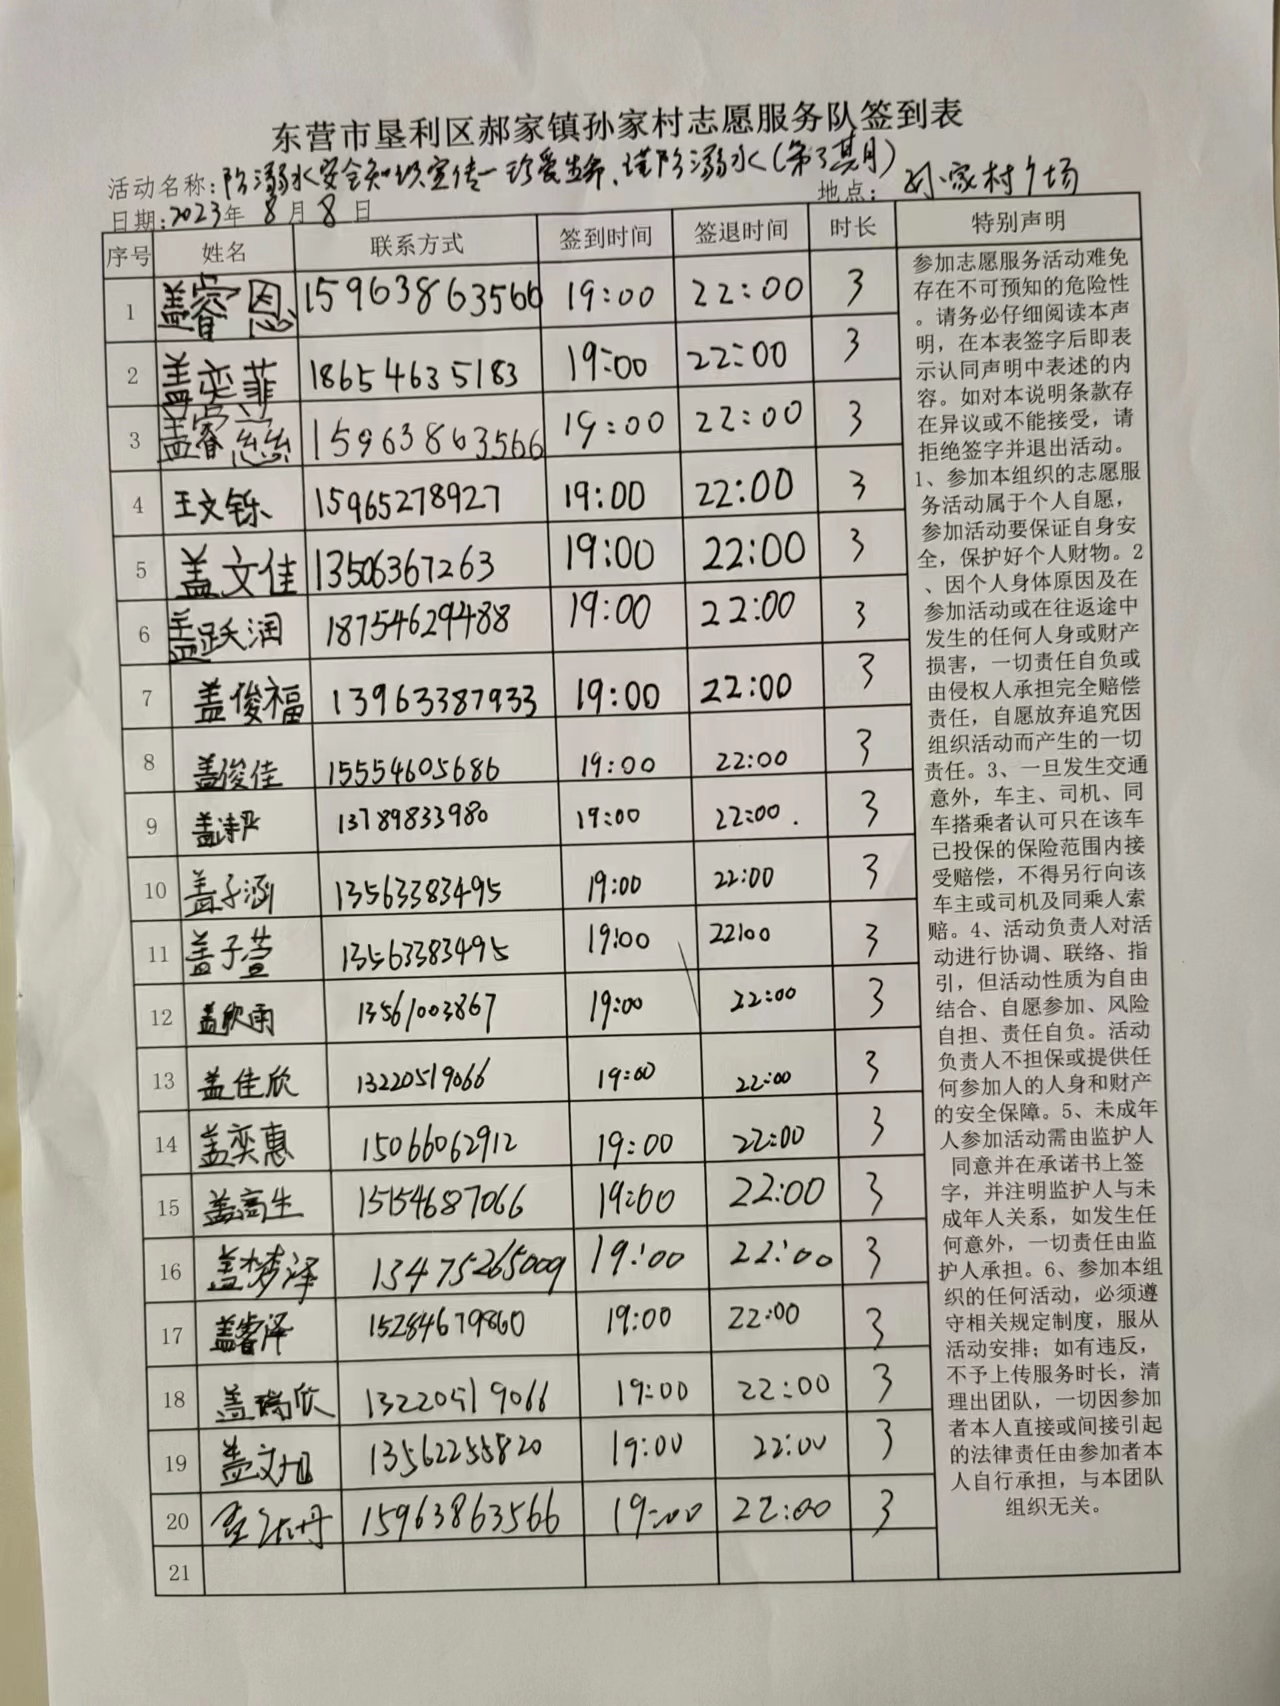 东营市垦利区郝家镇孙家村志愿服务队签到表
活动名称:防溺水安全知识宣传—珍爱生命、谨防溺水(第3期) 地点: 孙家村广场
日期:2023年 8 月 8 日
序号 姓名 联系方式 签到时间 签退时间 时长 特别声明
1 盖睿恩 15963863566 19:00 22:00 3
2 盖奕菲 18654635183 19:00 22:00 3
3 盖睿 15963863566 19:00 22:00 3
4 王文铄 15965278927 19:00 22:00 3
5 盖文佳 13506367263 19:00 22:00 3
6 盖跃润 18754629488 19:00 22:00 3
7 盖俊福 13963387933 19:00 22:00 3
8 盖俊佳 15554605686 19:00 22:00 3
9 盖 13789833980 19:00 22:00 3
10 盖子涵 13563383495 19:00 22:00 3
11 盖子萱 13563383495 19:00 22:00 3
12 盖欣雨 13561003867 19:00 22:00 3
13 盖佳欣 13220519066 19:00 22:00 3
14 盖奕惠 15066062912 19:00 22:00 3
15 盖高生 15154687066 19:00 22:00 3
16 盖梦泽 13475265009 19:00 22:00 3
17 盖睿泽 15284679860 19:00 22:00 3
18 盖瑞欣 13220519066 19:00 22:00 3
19 盖文旭 13562255820 19:00 22:00 3
20 15963863566 19:00 22:00 3
21
参加志愿服务活动难免
存在不可预知的危险性
。请务必仔细阅读本声
明，在本表签字后即表
示认同声明中表述的内
容。如对本说明条款存
在异议或不能接受，请
拒绝签字并退出活动。
1、参加本组织的志愿服
务活动属于个人自愿，
参加活动要保证自身安
全，保护好个人财物。2
、因个人身体原因及在
参加活动或在往返途中
发生的任何人身或财产
损害，一切责任自负或
由侵权人承担完全赔偿
责任，自愿放弃追究因
组织活动而产生的一切
责任。3、一旦发生交通
意外，车主、司机、同
车搭乘者认可只在该车
已投保的保险范围内接
受赔偿，不得另行向该
车主或司机及同乘人索
赔。4、活动负责人对活
动进行协调、联络、指
引，但活动性质为自由
结合、自愿参加、风险
自担、责任自负。活动
负责人不担保或提供任
何参加人的人身和财产
的安全保障。5、未成年
人参加活动需由监护人
同意并在承诺书上签
字，并注明监护人与未
成年人关系，如发生任
何意外，一切责任由监
护人承担。6、参加本组
织的任何活动，必须遵
守相关规定制度，服从
活动安排；如有违反，
不予上传服务时长，清
理出团队，一切因参加
者本人直接或间接引起
的法律责任由参加者本
人自行承担，与本团队
组织无关。